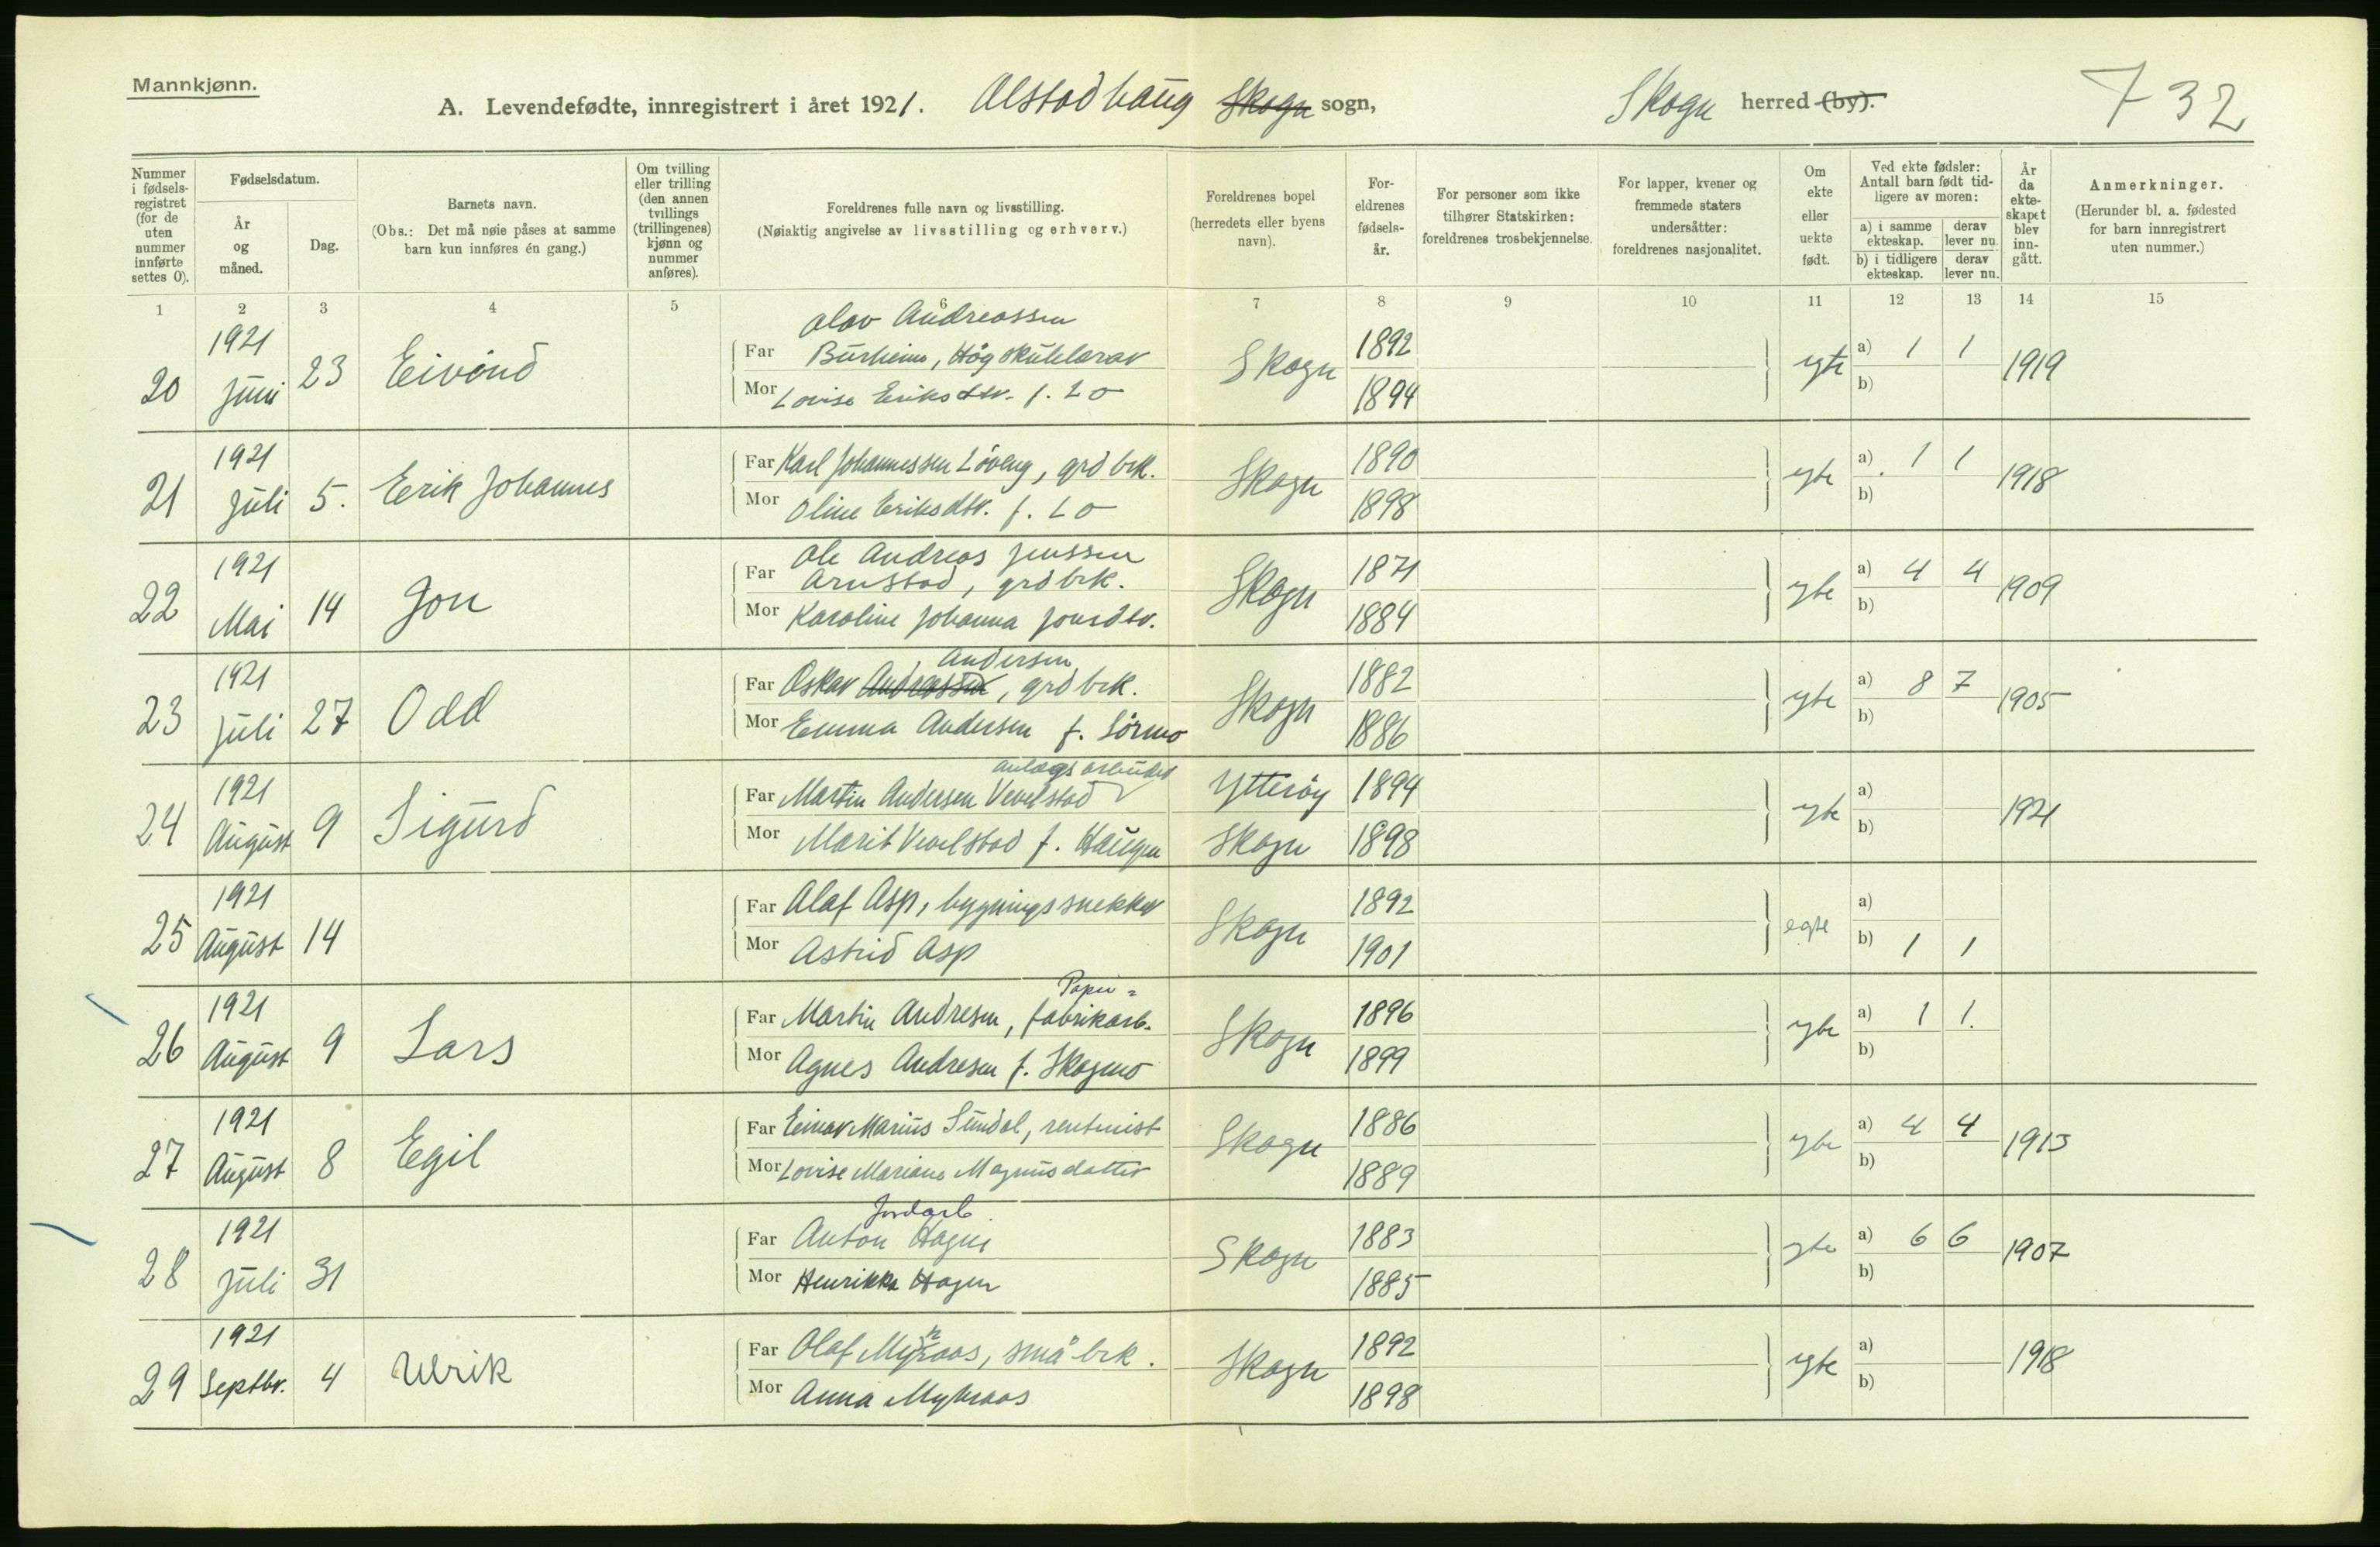 Mannkjønn.
A. Levendefødte, innregistrert i året 1921. Alstadhaug Skogn sogn, Skogn herred (by). 732
Nummer i fødselsregistret (for de uten nummer innførte settes 0).
Fødselsdatum.
År og måned.
Dag.
Barnets navn.
(Obs.: Det må nøie påses at samme barn kun innføres én gang.)
Om tvilling eller trilling (den annen tvillings (trillingenes) kjønn og nummer anføres).
Foreldrenes fulle navn og livsstilling.
(Nøiaktig angivelse av livsstilling og erhverv.)
Foreldrenes bopel (herredets eller byens navn).
Foreldrenes fødselsår.
For personer som ikke tilhører Statskirken: foreldrenes trosbekjennelse.
For lapper, kvener og fremmede staters undersåtter: foreldrenes nasjonalitet.
Om ekte eller uekte født.
Ved ekte fødsler: Antall barn født tidligere av moren:
a) i samme ekteskap. derav lever nu.
b) i tidligere ekteskap. derav lever nu.
År da ekteskapet blev inngått.
Anmerkninger.
(Herunder bl. a. fødested for barn innregistrert uten nummer.)
1 2 3 4 5 6 7 8 9 10 11 12 13 14 15
20 1921 Juni 23 Eivind
Far Olav Andreassen
Burheim, Høgskulelærar
Mor Lovise Eriksdtr. f. Lo
Skogn 1892 1894 egte a) 1 1 b) 1919
21 1921 Juli 5. Erik Johannes
Far Karl Johannessen Løveng, grdbrk.
Mor Oline Eriksdtr. f. Lo
Skogn 1890 1898 egte a) 1 1 b) 1918
22 1921 Mai 14 Jon
Far Ole Andreas Jenssen
Arnstad, grdbrk.
Mor Karoline Johanna Jonsdtr.
Skogn 1871 1884 egte a) 4 4 b) 1909
23 1921 Juli 27 Odd
Andersen
Far Oskar Andreassen, grdbrk.
Mor Emma Andersen f. Sørmo
Skogn 1882 1886 egte a) 8 7 b) 1905
24 1921 August 9 Sigurd
anlægsarbeider
Far Martin Andersen Vevelstad
Mor Marit Vevelstad f. Haugen
Ytterøy Skogn 1894 1898 egte a) b) 1921
25 1921 August 14
Far Olaf Asp, bygningssnekker
Mor Astrid Asp
Skogn 1892 1901 egte a) b) 1 1
26 1921 August 9 Lars
Papir=
Far Martin Andresen, fabrikarb.
Mor Agnes Andresen f. Skogmo
Skogn 1896 1899 egte a) 1 1. b)
27 1921 August 8 Egil
Far Einar Marius Sundal, rentenist
Mor Lovise Mariane Magnusdatter
Skogn 1886 1889 egte a) 4 4 b) 1913
28 1921 Juli 31
Jordarb.
Far Anton Hagen
Mor Henrikka Hagen
Skogn 1883 1885 egte a) 6 6 b) 1907
29 1921 Septbr. 4 Ulrik
Far Olaf Myhraas, småbrk.
Mor Anna Myhraas
Skogn 1892 1898 egte a) b) 1918